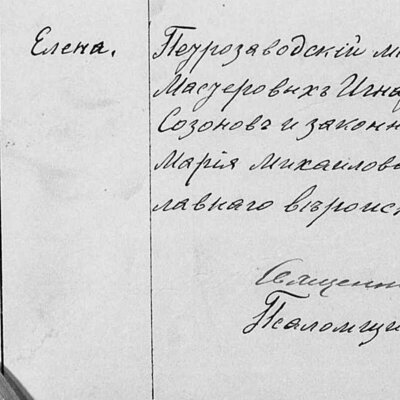 Елена.
Петрозаводскій м
Мастеровыхъ Игна
Созоновъ и законн
Марія Михаилов
лавнаго вѣроис
Священн
Псаломщи